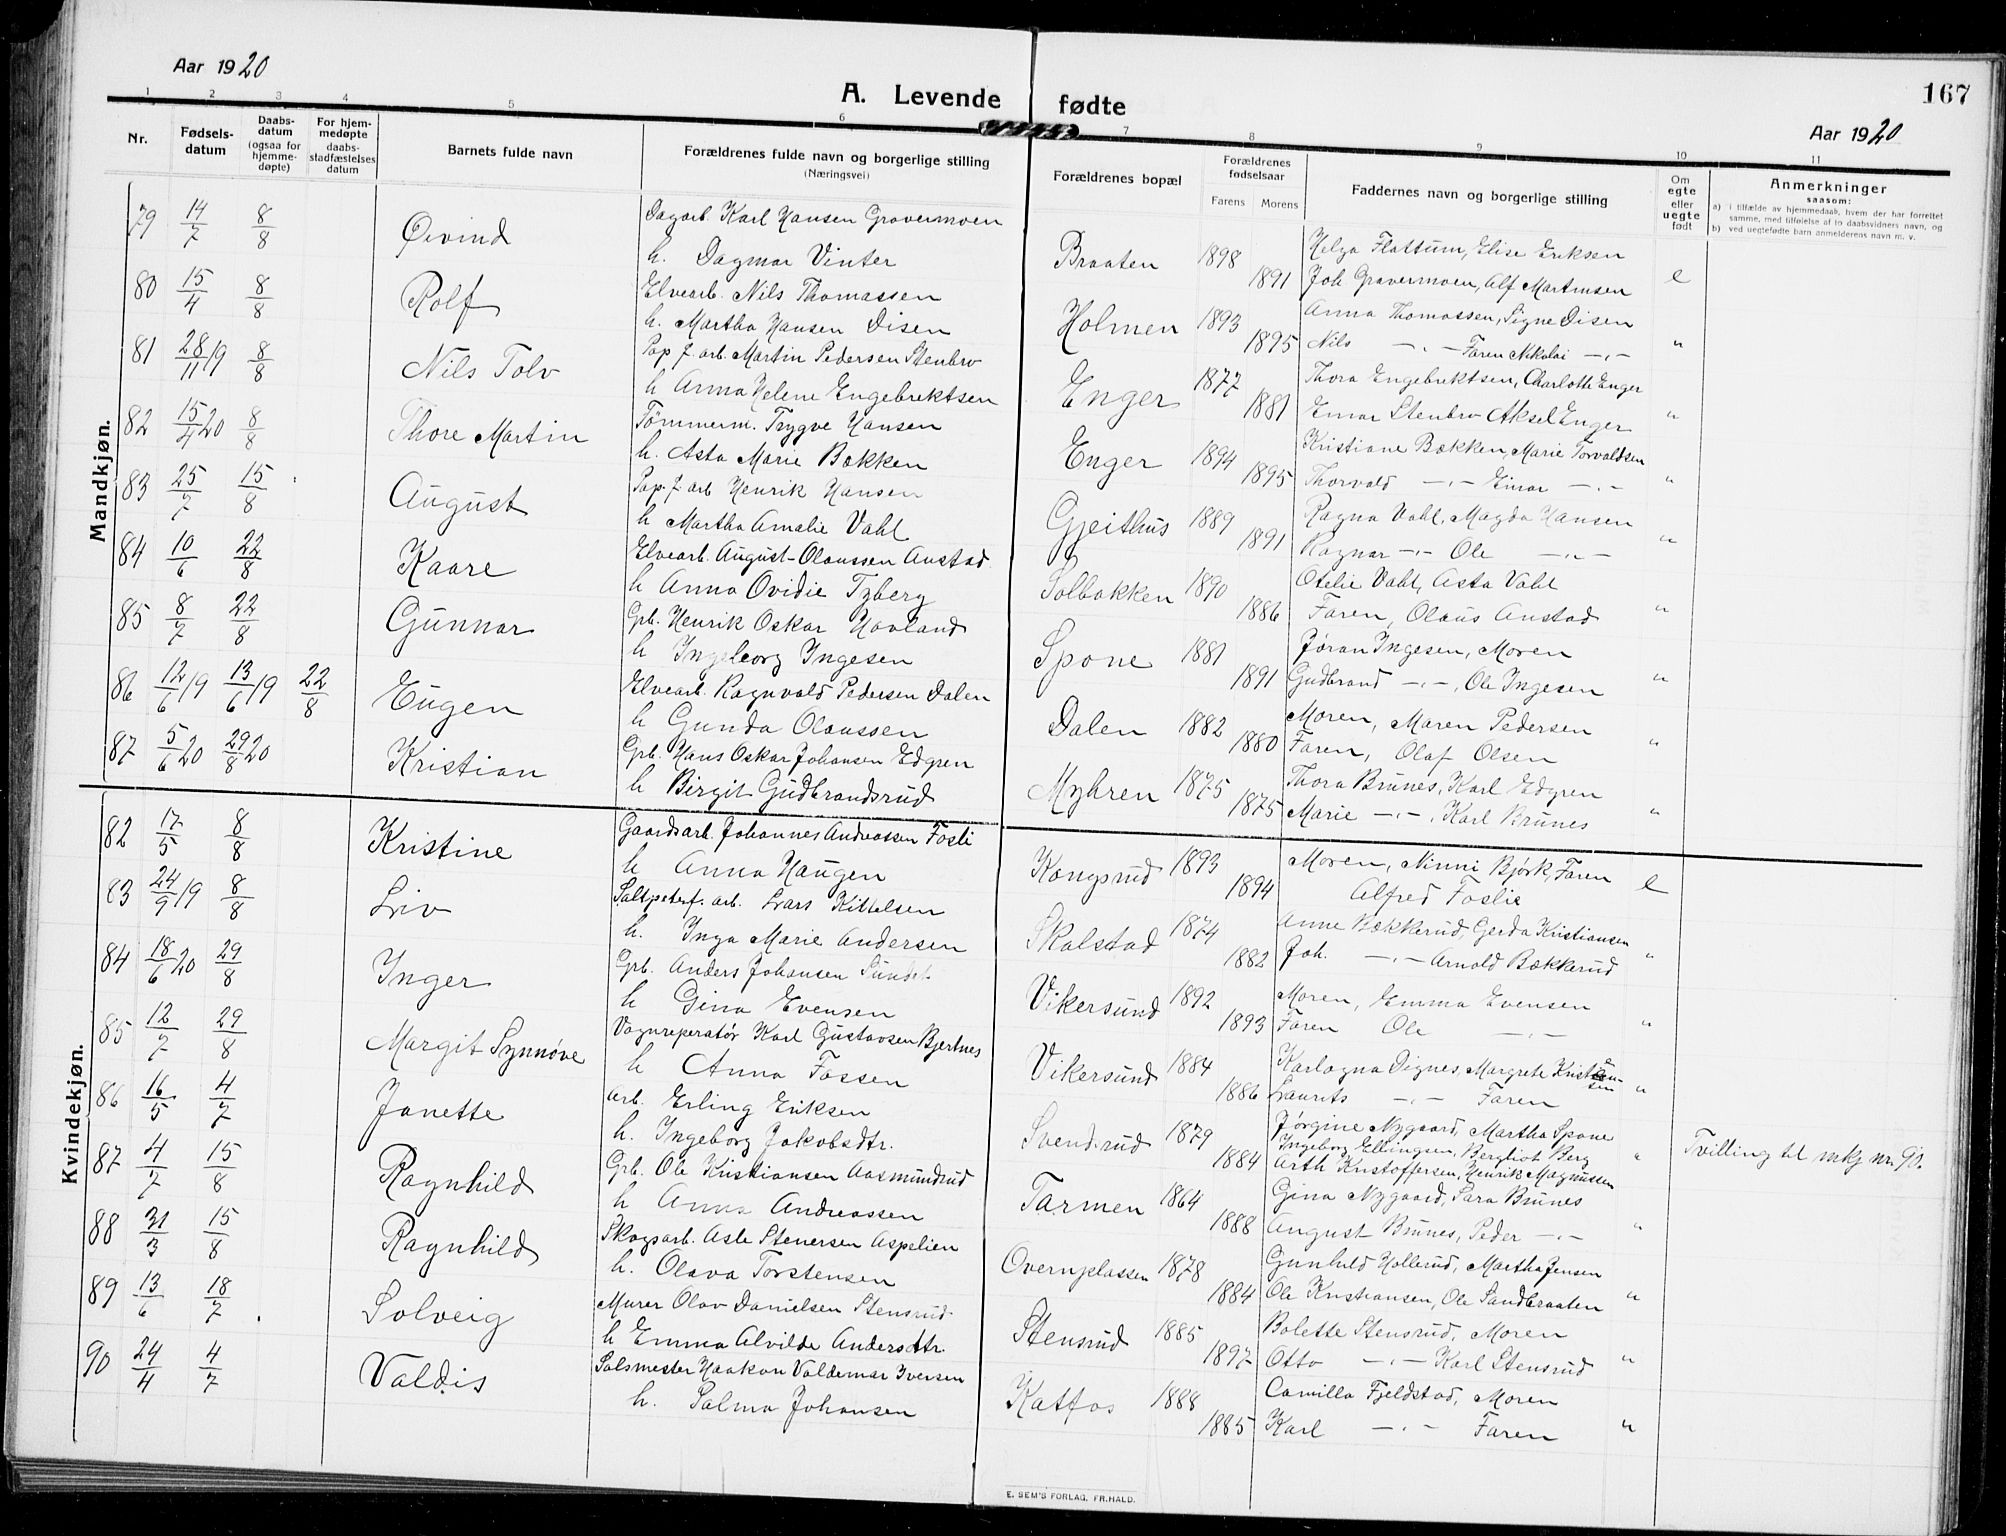 Aar 1920
A. Levende fødte
167
Aar 1920
1 2 3 4 5 6 7 8 9 10 11
Nr.
Fødselsdatum
Daabsdatum (ogsaa for hjemmedøpte)
For hjemmedøpte daabsstadfæstelses datum
Barnets fulde navn
Forældrenes fulde navn og borgerlige stilling
(Næringsvei)
Forældrenes bopæl
Forældrenes fødselsaar
Farens Morens
Faddernes navn og borgerlige stilling
Om egte eller uegte født
Anmerkninger
saasom:
a) i tilfælde av hjemmedaab, hvem der har forrettet samme, med tilføielse af to daabsvidners navn, og
b) ved uegtefødte barn anmelderens navn m. v.
Mandkjøn.
79 14/7 8/8 Øivind Dagarb. Karl Hansen Gravermoen Braaten 1898 Helga Flattum, Elise Eriksen
h. Dagmar Vinter 1891 Joh Gravermoen, Alf Martinsen e
80 15/4 8/8 Rolf Elvearb. Nils Thomassen Holmen 1893 Anna Thomassen, Signe Disen
h. Martha Hansen Disen 1895 Nils —.— Faren Nikolai —.— "
81 28/11 19 8/8 Nils Tolv Pap. f. arb. Martin Pedersen Stenbro Enger 1877 Thora Engebrektsen, Charlotte Enger
h Anna Helene Engebrektsen 1881 Einar Stenbro Aksel Enger "
82 15/4 20 8/8 Thore Martin Tömmerm. Trygve Hansen Enger 1894 Kristiane Bækken, Marie Torvaldsen
h. Asta Marie Bækken 1895 Thorvald —.— Einar —.— "
83 25/7 15/8 August Pap. f. arb Henrik Hansen Gjeithus 1889 Ragna Vahl, Magda Hansen
h Martha Amalie Vahl 1891 Ragnar —.— Ole —.— "
84 10/6 22/8 Kaare Elvearb. August Olaussen Anstad Solbakken 1890 Otelie Vahl, Asta Vahl
h Anna Ovidie Tyberg 1886 Faren, Olaus Anstad "
85 8/7 22/8 Gunnar Grb. Henrik Oskar Hovland Spone 1881 Jøran Ingesen, Moren
h Ingeborg Ingesen 1891 Gudbrand —.—, Ole Ingesen "
86 12/6 19 13/6 19 22/8 Eugen Elvearb. Ragnvald Pedersen Dalen Dalen 1882 Moren, Maren Pedersen
h Gunda Olaussen 1880 Faren, Olaf Olsen "
87 5/6 20 29/8 20 Kristian Grb. Hans Oskar Johansen Edgren Myhren 1875 Thora Brunes, Karl Edgren
h Birgit Gudbrandsrud 1875 Marie —.—, Karl Brunes "
Kvindekjøn.
82 17/5 8/8 Kristine Gaardsarb. Johannes Andreassen Fosli Kongsrud 1893 Moren, Ninni Bjørk, Faren e
h Anna Haugen 1894 Alfred Foslie
83 24/9 19 8/8 Liv Saltpeterf. arb. Lars Kittelsen Skalstad 1874 Anne Bækkerud, Gerda Kristiansen
h. Inga Marie Andersen 1882 Joh. —.— Arnold Bækkerud "
84 18/6 20 29/8 Inger Grb. Anders Johansen Sundet Vikersund 1892 Moren, Emma Evensen
h Gina Evensen 1893 Faren Ole —.— "
85 12/7 29/8 Margit Synnøve Vognreperatør Karl Gustavsen Bjertnes Vikersund 1884 Karlagna Dignes, Margrete Kristiansen
h Anna Fossen 1886 Laurits —.— Faren "
86 16/5 4/7 Janette arb. Erling Eriksen Svendsrud 1879 Jørgine Nygaard, Martha Spone
h. Ingeborg Jakobsdtr. 1884 Ingeborg Ellingsen, Bergliot Berg
Arth Kristoffersen, Henrik Magnussen " Tvilling til mkj nr. 90.
87 4/7 15/8 Ragnhild Grb. Ole Kristiansen Aasmundrud Tarmen 1864 Gina Nygaard, Sara Brunes
h Anna Andreassen 1888 August Brunes, Peder —.— "
88 31/3 15/8 Ragnhild Skogsarb. Asle Stenersen Aspelien Overnplassen 1878 Gunhild Hollerud, Martha Jensen
h. Olava Torstensen 1884 Ole Kristiansen, Ole Sandbraaten "
89 13/6 18/7 Solveig Murer Olav Danielsen Stensrud Stensrud 1885 Bolette Stensrud, Moren
h Emma Alvilde Andersdtr. 1897 Otto —.— Karl Stensrud "
90 24/4 4/7 Valdis Salsmester Haakon Valdemar Iversen Katfos 1888 Camilla Fjeldstad, Moren
h. Salma Johansen 1885 Karl —.— Faren "
E. SEM'S FORLAG, FR.HALD.